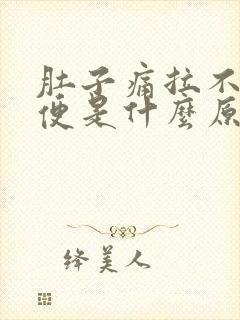 肚子痛拉不
便是什麼原
绛美人